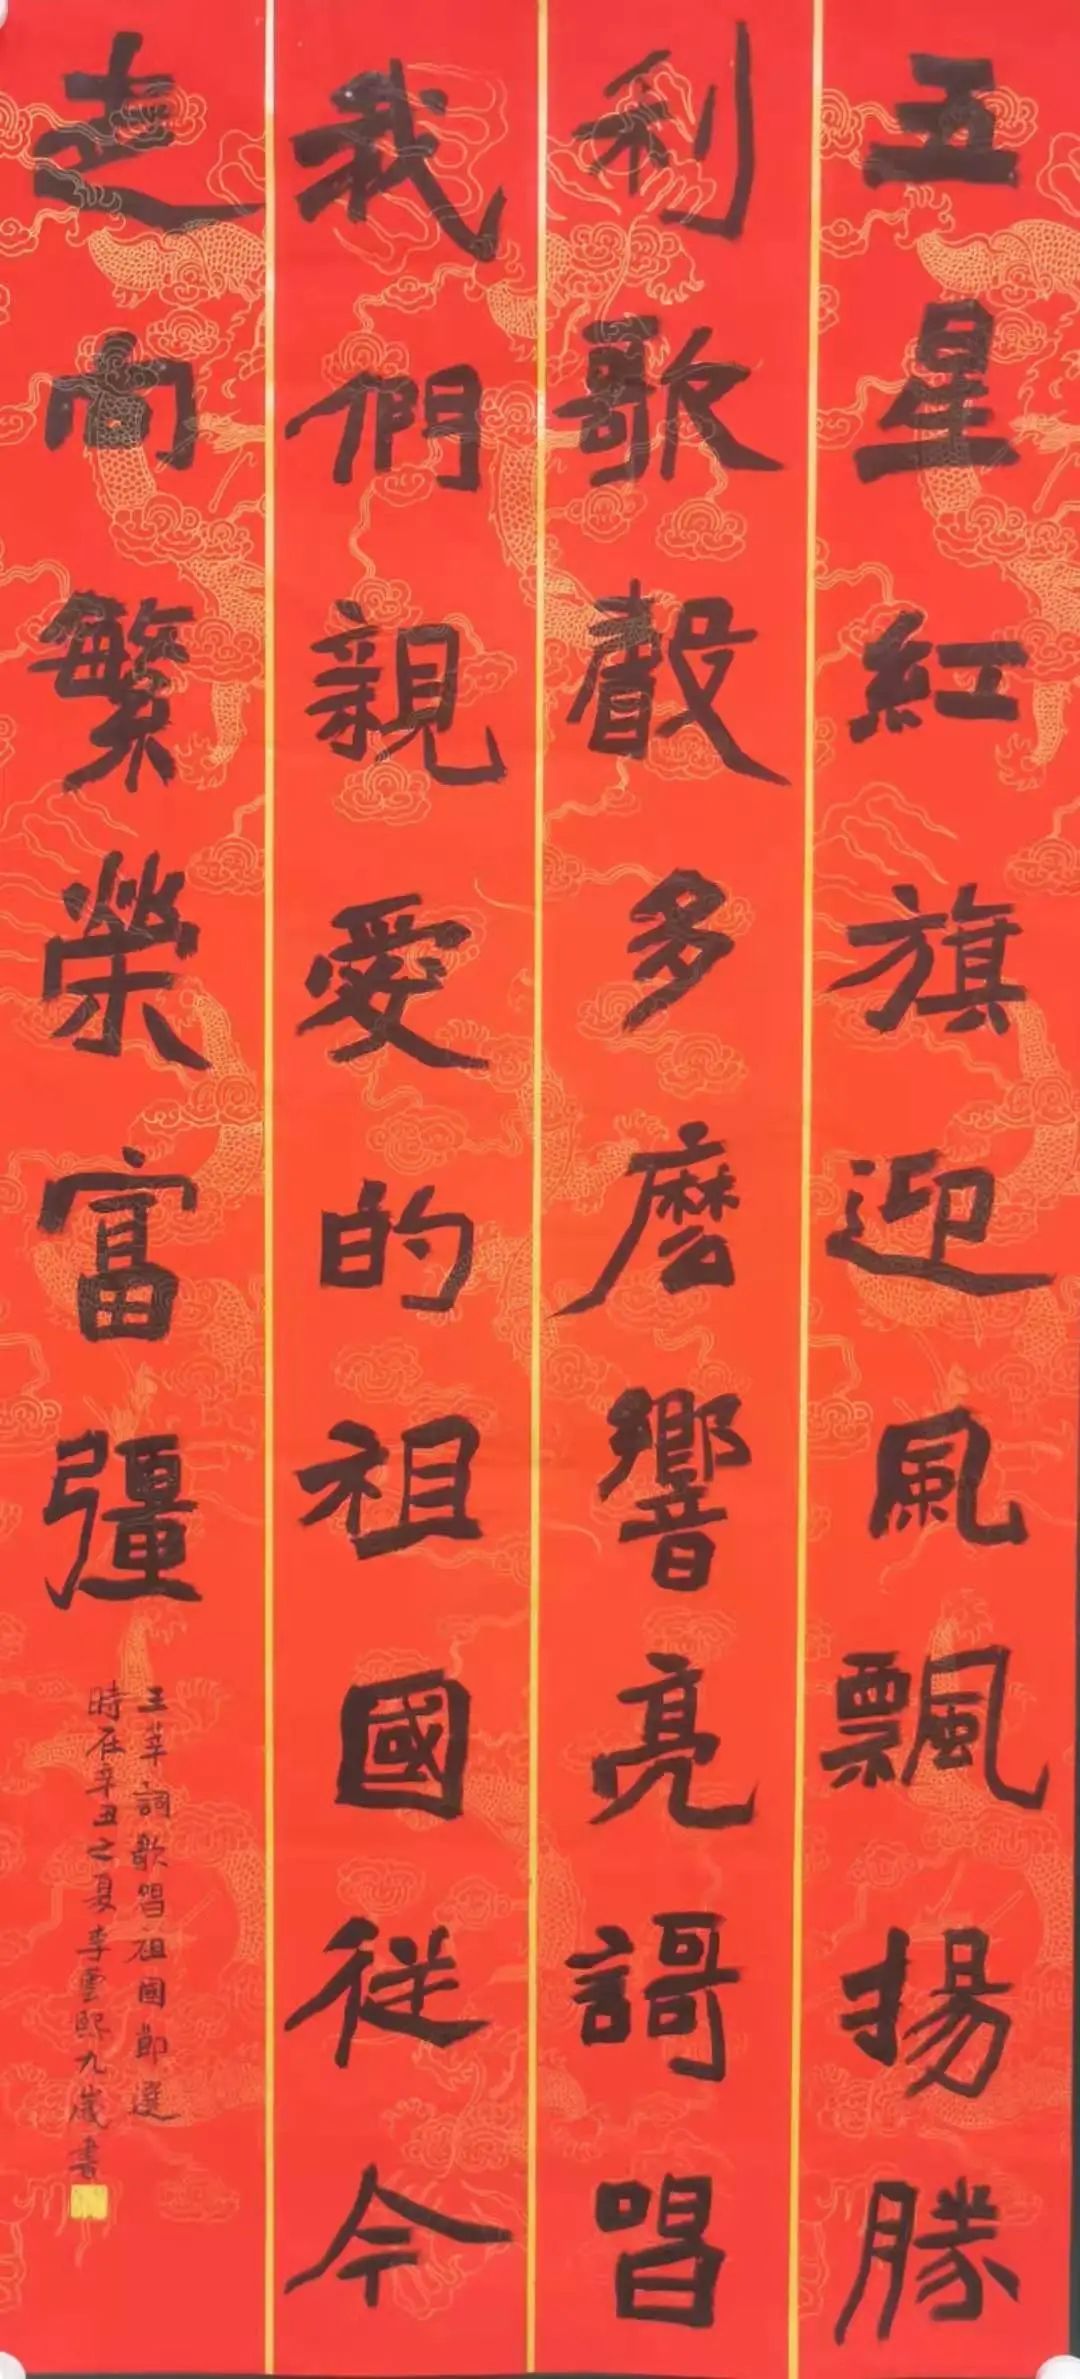 五星紅旗迎風飄揚勝
利歌聲多麼響亮謌唱
我們親愛的祖國從今
走向繁榮富彊
王莘詞歌唱祖國節選
時在辛丑之夏李雲熙九歲書